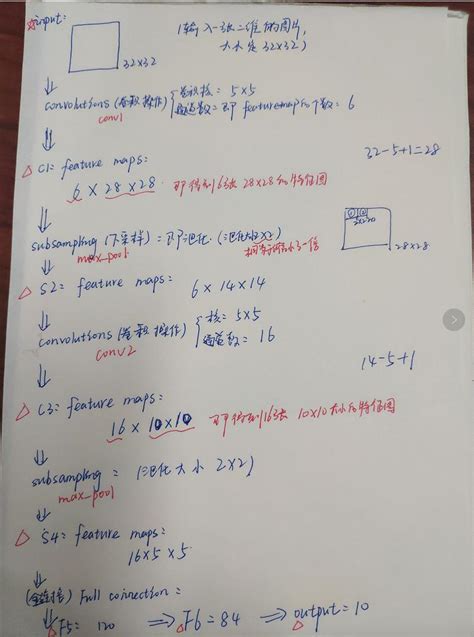 ☆input:
(输入一张二维的图片,
大小是32×32)
32×32
convolutions (卷积操作) { 卷积核: 5×5
通道数=即 feature map的个数: 6
conv1
32-5+1=28
△ C1: feature maps:
6 × 28 × 28 即得到6张 28×28的特征图
subsampling (下采样) = 即池化 (池化大小2×2)
max_pool
28×28
△ S2: feature maps:
6×14×14
convolutions (卷积操作) { 核: 5×5
通道数= 16
conv2
14-5+1
△ C3: feature maps:
16 × 10×10 即得到16张 10×10大小的特征图
subsampling = 池化大小 2×2
max_pool
△ S4: feature maps:
16×5×5
(全连接) Full connection:
△F5: 120 ⇒ △F6=84 ⇒ △output=10